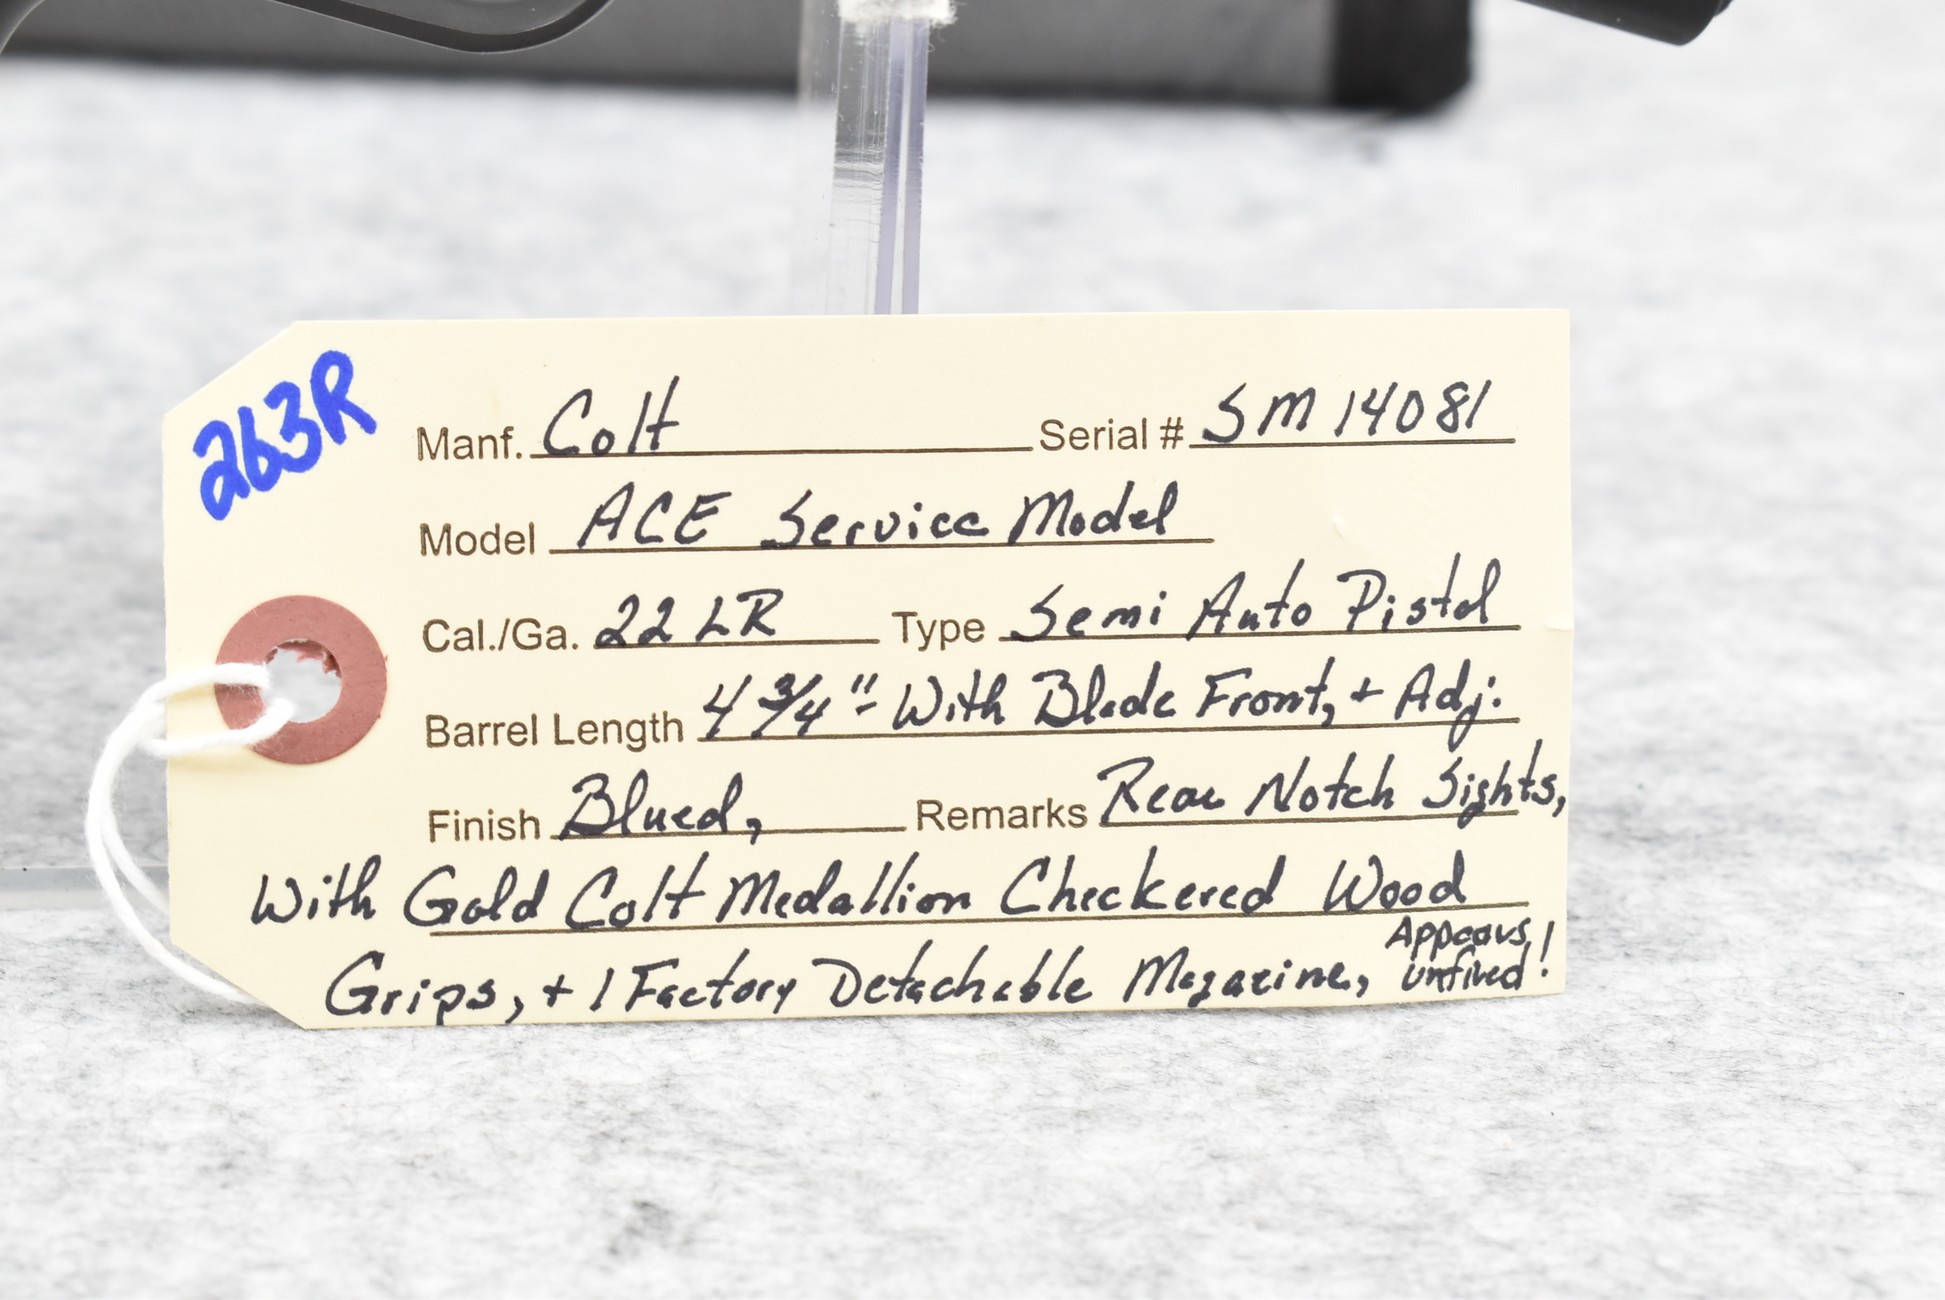 263R
Manf. Colt Serial # SM 14081
Model ACE Service Model
Cal./Ga. 22 LR Type Semi Auto Pistol
Barrel Length 4 3/4" - With Blade Front, + Adj.
Finish Blued, Remarks Rear Notch Sights,
With Gold Colt Medallion Checkered Wood
Grips, + 1 Factory Detachable Magazine, Appears
unfired!